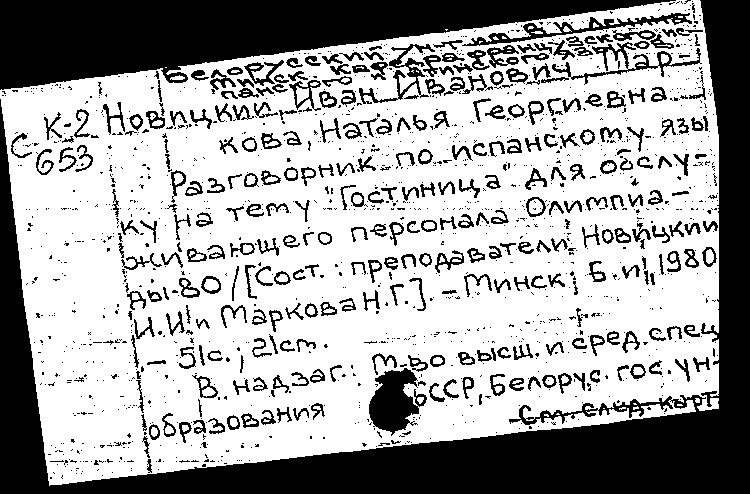 Белорусский ун-т им В И Ленина.
Минск. Кафедра французского, ис-
панского, латинского языков
С К-2 Новицкий, Иван Иванович, Мар-
653 кова, Наталья Георгиевна
Разговорник по испанскому язы
ку на тему "Гостиница" для обслу-
живающего персонала Олимпиа-
ды-80 / [Сост.: преподаватели Новицкий
И.И. и Маркова Н.Г.]. - Минск; Б.и., 1980
- 51с.; 21см.
В надзаг.: М-во высш. и сред. спец
образования БССР, Белорус. гос. ун-
См. след. карт